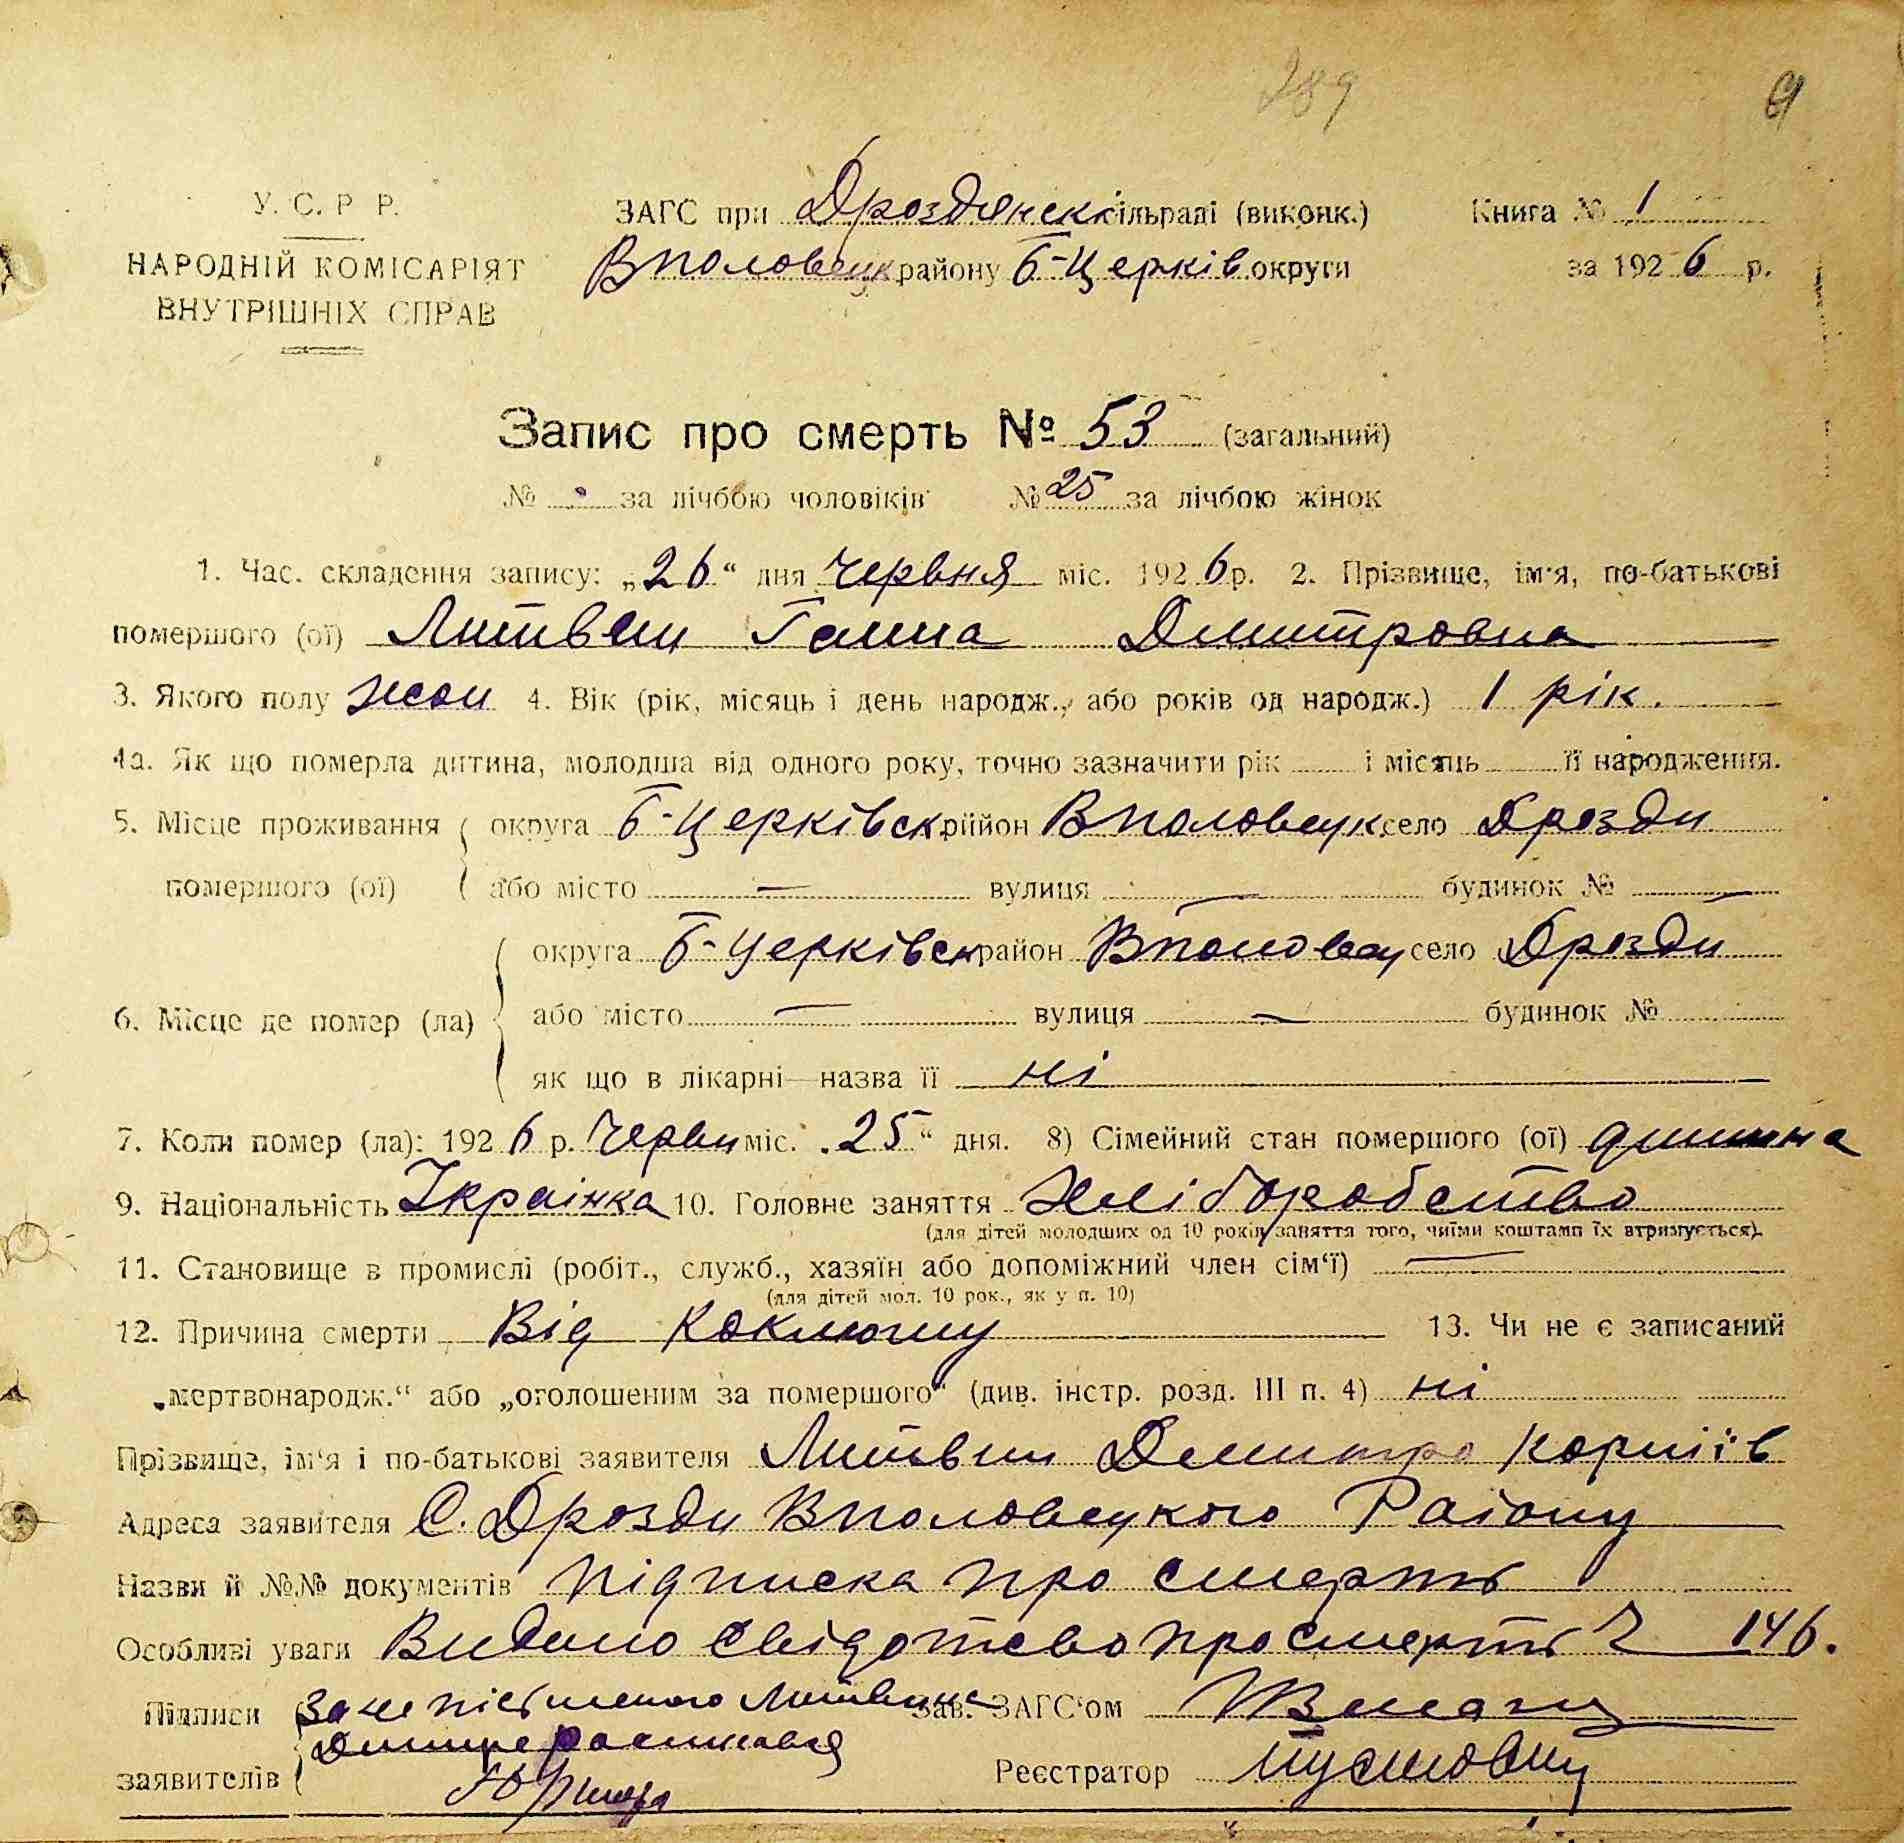 289 9
У. С. Р Р. ЗАГС при Дроздянск сільраді (виконк.) Книга № 1
НАРОДНІЙ КОМІСАРІЯТ Вполовецк району Б-Церків округи за 1926 р.
ВНУТРІШНІХ СПРАВ
Запис про смерть № 53 (загальний)
№ за лічбою чоловіків № 25 за лічбою жінок
1. Час. складення запису: „26“ дня червня міс. 1926 р. 2. Прізвище, ім'я, по-батькові
помершого (ої) Литвин Галина Дмитровна
3. Якого полу жон 4. Вік (рік, місяць і день народж., або років од народж.) 1 рік.
4а. Як що померла дитина, молодша від одного року, точно зазначити рік і місяць її народження.
5. Місце проживання округа Б-Церківск район Вполовецк село Дрозди
помершого (ої) або місто — вулиця — будинок № —
округа Б-Церківск район Вполовец село Дрозди
6. Місце де помер (ла) або місто — вулиця — будинок №
як що в лікарні—назва її ні
7. Коли помер (ла): 1926 р. Червн міс. „25“ дня. 8) Сімейний стан помершого (ої) дитина
9. Національність Українка 10. Головне заняття Хліборобство
(для дітей молодших од 10 років заняття того, чиїми коштами їх втримується).
11. Становище в промислі (робіт., служб., хазяїн або допоміжний член сім'ї) —
(для дітей мол. 10 рок., як у п. 10)
12. Причина смерти Від Коклюшу 13. Чи не є записаний
„мертвонародж.“ або „оголошеним за помершого“ (див. інстр. розд. III п. 4) ні
Прізвище, ім'я і по-батькові заявителя Литвин Дмитро Корніїв
Адреса заявителя С. Дрозди Вполовецкого Району
Назви й №№ документів підписка про смерть
Особливі уваги Видано свідотство про смерть 146.
Підписи За не письменого Литвина Зав. ЗАГС'ом
Дмитра росписався
заявителів Реєстратор